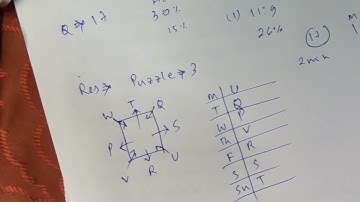 Q → 17
30%
15%
(1) 11:9
26%
(17)
2min
Res → Puzzle → 3
W T Q
P S
V R U
M U
T Q
W P
Th V
F R
S S
Su T